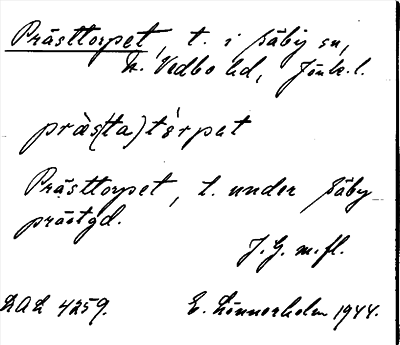 Prästtorpet, t. i Säby sn,
N. Vedbo hd, Jönk. l.
präs(ta)tòrpet
Prästtorpet, t. under Säby
prästgd.
J. G. m. fl.
DAL 4259. E. Lönnerholm 1944.